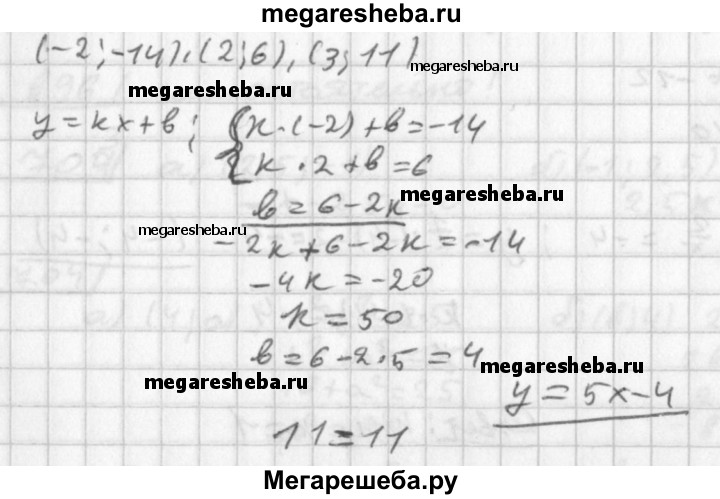 megaresheba.ru
(-2; -14), (2; 6), (3; 11) megaresheba.ru
megaresheba.ru
y = kx + b; { k · (-2) + b = -14
k · 2 + b = 6
b = 6 - 2k megaresheba.ru
megaresheba.ru
-2k + 6 - 2k = -14
-4k = -20
k = 50
b = 6 - 2 · 5 = 4
megaresheba.ru megaresheba.ru
y = 5x - 4
11 = 11
Мегарешеба.ру